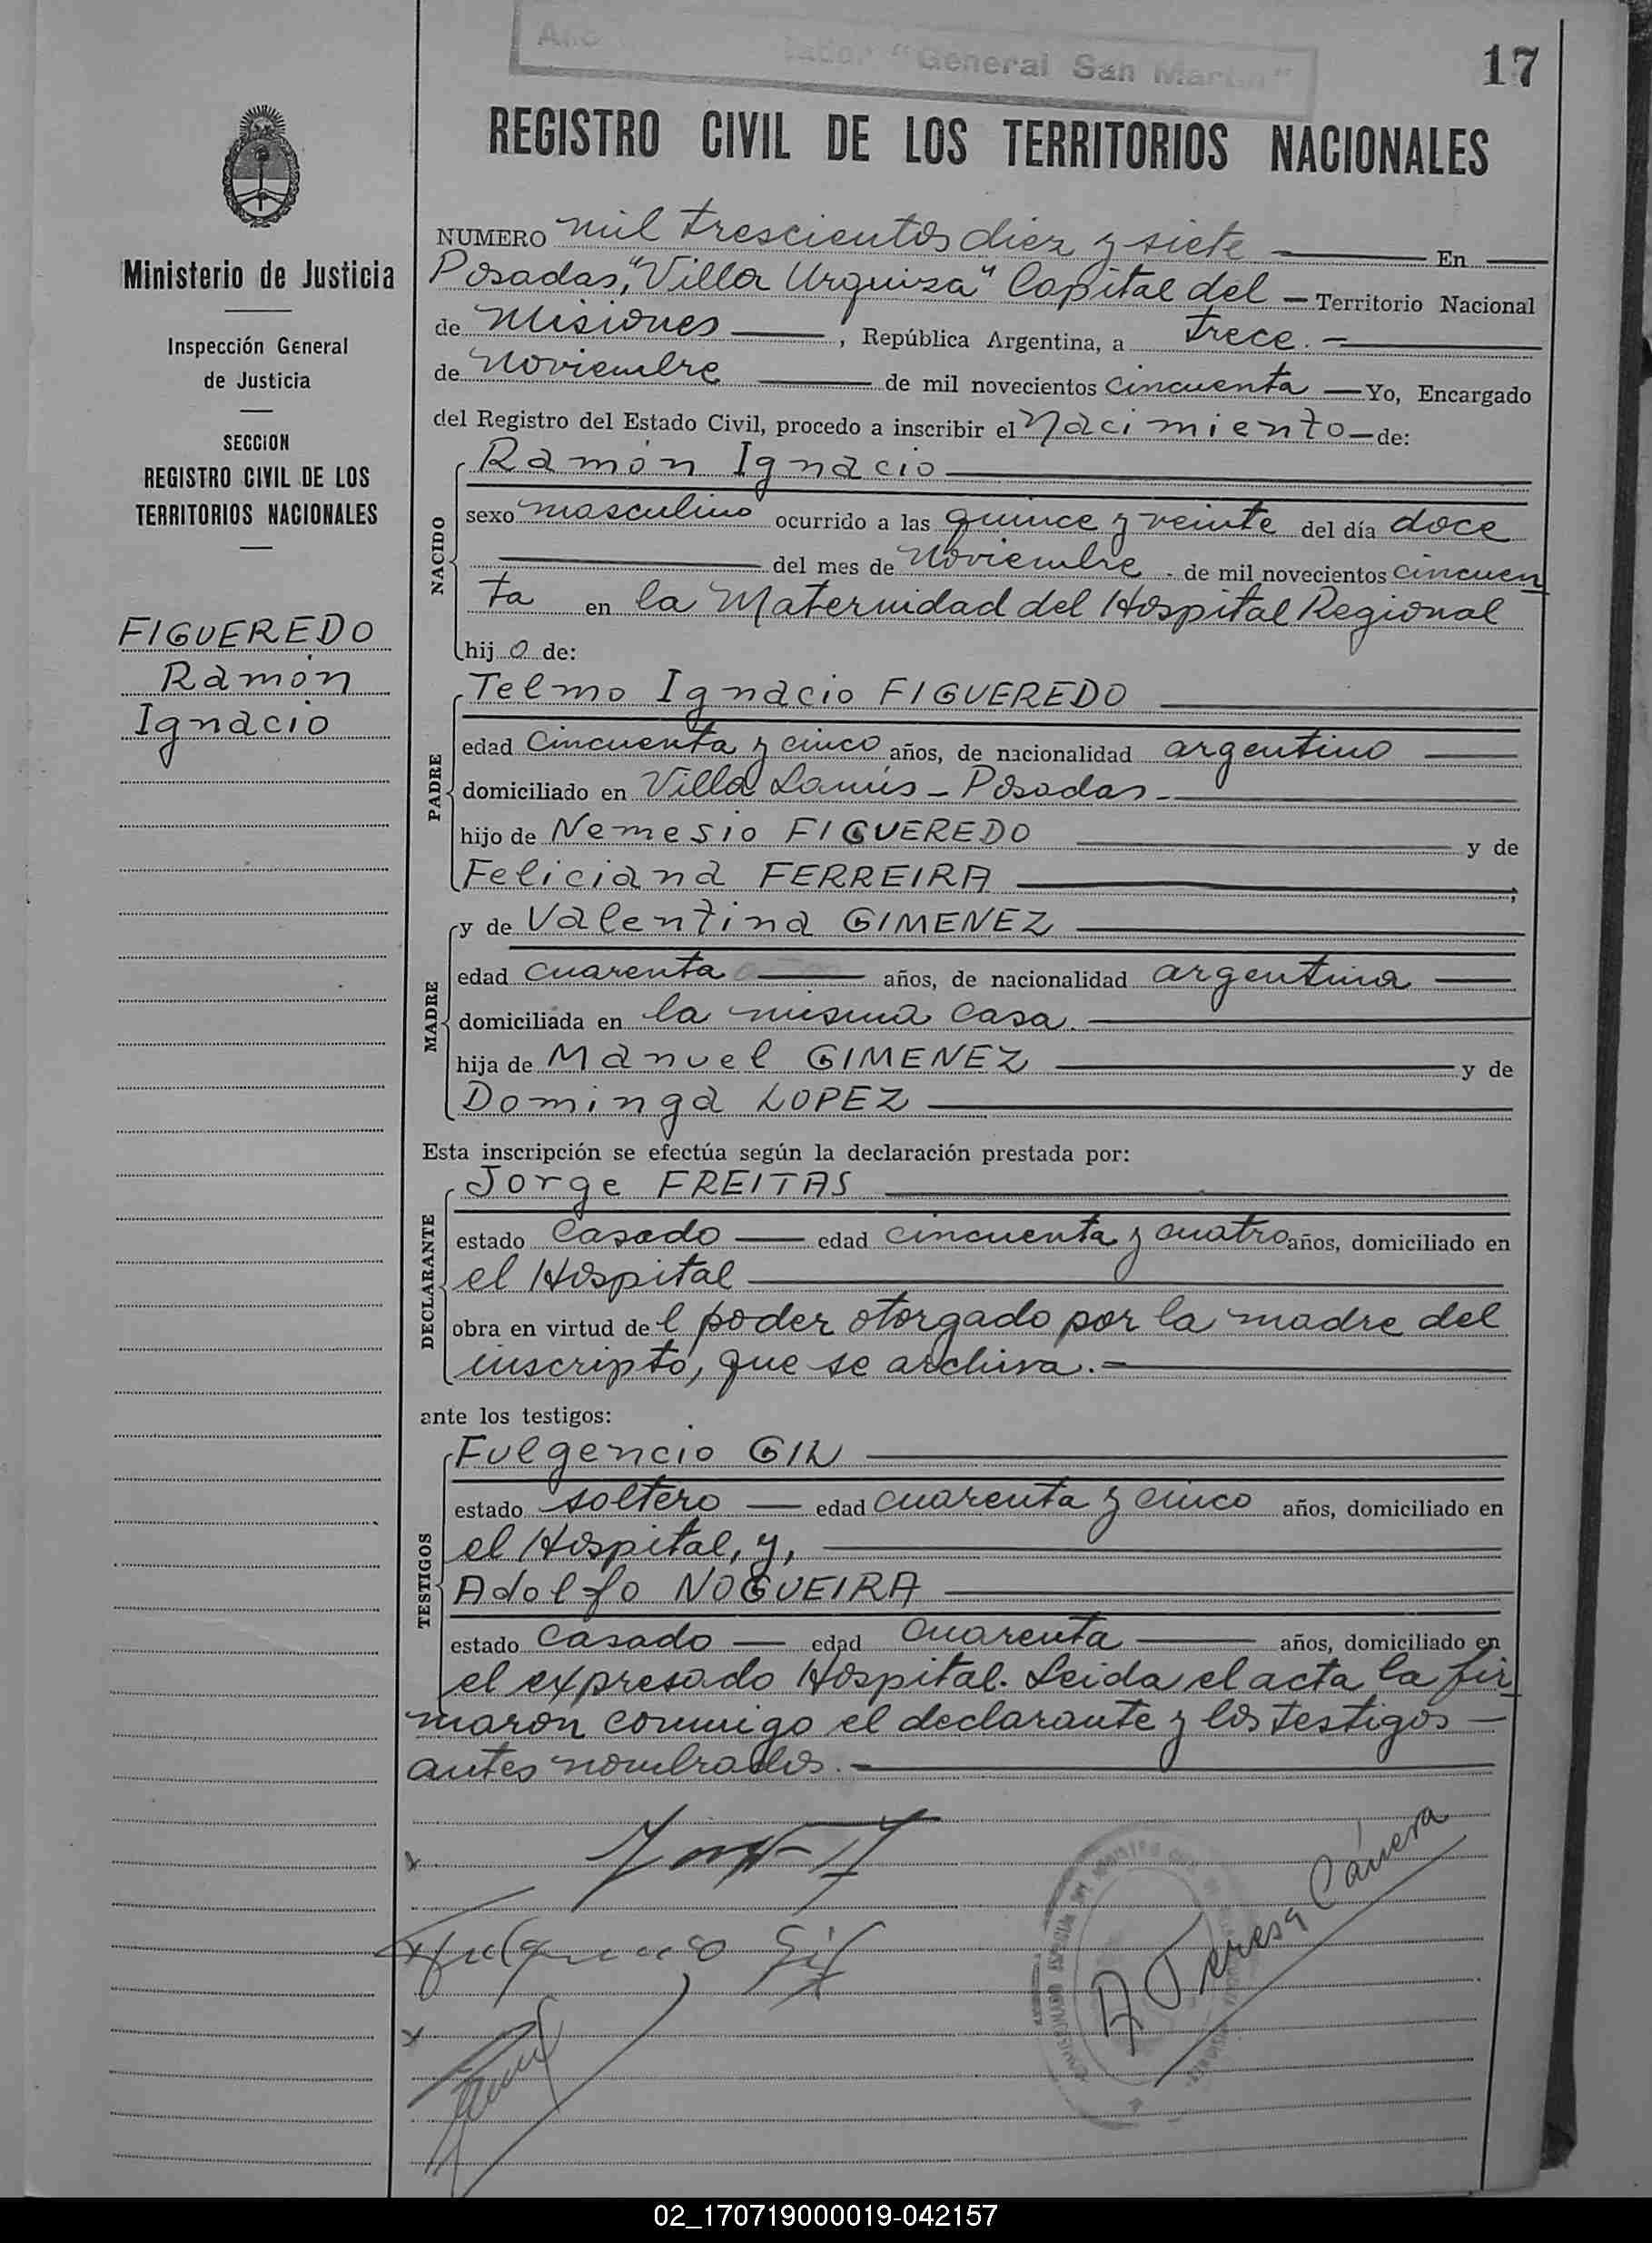 "General San Martín"
17
REGISTRO CIVIL DE LOS TERRITORIOS NACIONALES
Ministerio de Justicia
Inspección General
de Justicia
SECCION
REGISTRO CIVIL DE LOS
TERRITORIOS NACIONALES
FIGUEREDO
Ramón
Ignacio
NUMERO mil trescientos diez y siete En
Posadas, "Villa Urquiza" Capital del Territorio Nacional
de Misiones, República Argentina, a trece.
de Noviembre de mil novecientos cincuenta Yo, Encargado
del Registro del Estado Civil, procedo a inscribir el Nacimiento de:
NACIDO
Ramón Ignacio
sexo masculino ocurrido a las quince y veinte del día doce
del mes de Noviembre de mil novecientos cincuen
ta en la Maternidad del Hospital Regional
hijo de:
PADRE
Telmo Ignacio FIGUEREDO
edad cincuenta y cinco años, de nacionalidad argentino
domiciliado en Villa Lanús - Posadas
hijo de Nemesio FIGUEREDO y de
Feliciana FERREIRA;
MADRE
y de Valentina GIMENEZ
edad cuarenta años, de nacionalidad argentina
domiciliada en la misma casa.
hija de Manuel GIMENEZ y de
Dominga LOPEZ
Esta inscripción se efectúa según la declaración prestada por:
DECLARANTE
Jorge FREITAS
estado casado edad cincuenta y cuatro años, domiciliado en
el Hospital
obra en virtud del poder otorgado por la madre del
inscripto, que se archiva.
ante los testigos:
TESTIGOS
Fulgencio GIL
estado soltero edad cuarenta y cinco años, domiciliado en
el Hospital, y,
Adolfo NOGUEIRA
estado casado edad cuarenta años, domiciliado en
el expresado Hospital. Leida el acta la fir
maron conmigo el declarante y los testigos
antes nombrados.
Fulgencio Gil
A Teresa Cánera
02_170719000019-042157